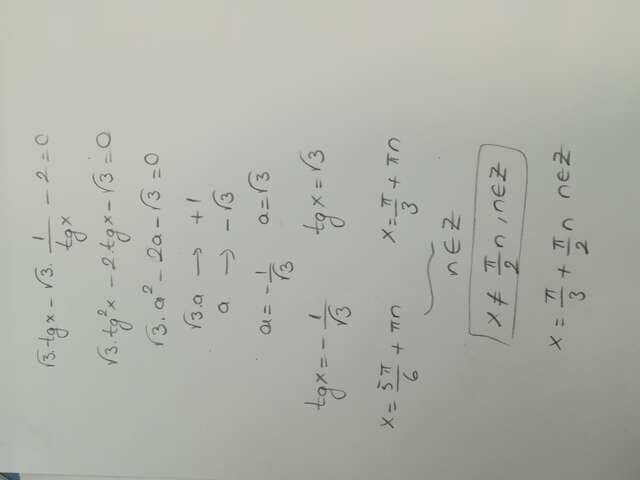 √3·tgx - √3·1/tgx - 2 = 0
√3·tg²x - 2tgx - √3 = 0
√3·a² - 2a - √3 = 0
√3·a → +1
a → -√3
a = -1/√3 a = √3
tgx = -1/√3 tgx = √3
x = 5π/6 + πn x = π/3 + πn
n∈Z
x ≠ π/2 n, n∈Z
x = π/3 + π/2 n n∈Z